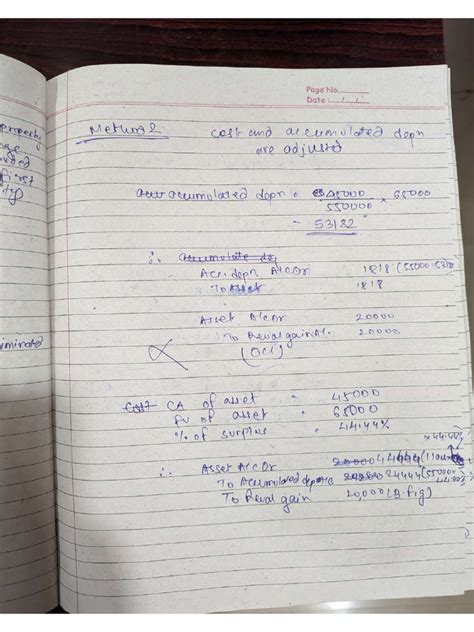 property
age
first
Page No.
Date : / /
Method 2 cost and accumulated depn
are adjusted
accumulated depn = 45000 × 65000
550000
= 53182
∴ accumulate
Acc. depn A/c Dr 1818 (55000-53182)
To Asset 1818
Asset A/c Dr 20000
To Reval gain A/c. 20000
(OCI)
iminated
Cost CA of asset = 45000
Fv of asset = 65000
% of surplus = 44.44%
× 44.44%
∴ Asset A/c Dr 20000 44444
To Accumulated depn A/c 24444 (55000 ×
To Reval gain 20,000 (B.fig)